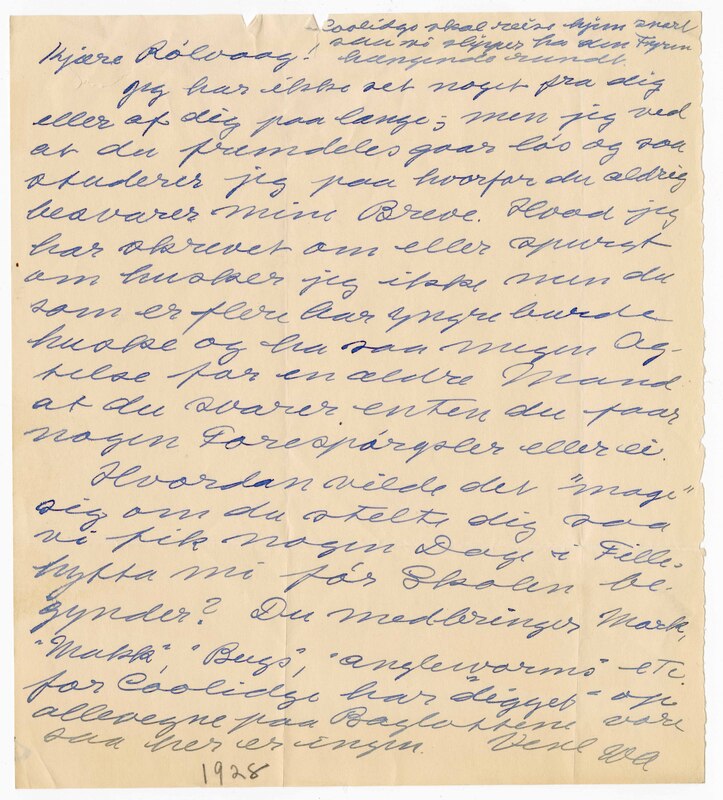 Coolidge skal reise hjem snart
saa vi slipper ha den Fyren
hængende rundt.
Kjære Rölvaag!
Jeg har ikke set noget fra dig
eller af dig paa længe; men jeg ved
at du fremdeles gaar lös og saa
studerer jeg paa hvorfor du aldrig
besvarer mine Breve. Hvad jeg
har skrevet om eller spurgt
om husker jeg ikke men du
som er flere Aar yngre burde
huske og ha saa megen Ag-
telse for en ældre Mand
at du svarer enten du faar
nogen Forespörgsler eller ei.
Hvordan vilde det "mage"
sig om du stelte dig saa
vi fik nogen Dage i Fille-
hytta mi för Skolen be-
gynder? Du medbringer Mark,
"Makk", "Bugs", "angleworms" etc.
for Coolidge har "digget" op
allevegne paa Baglottene vore
saa her er ingen. Venl WA
1928